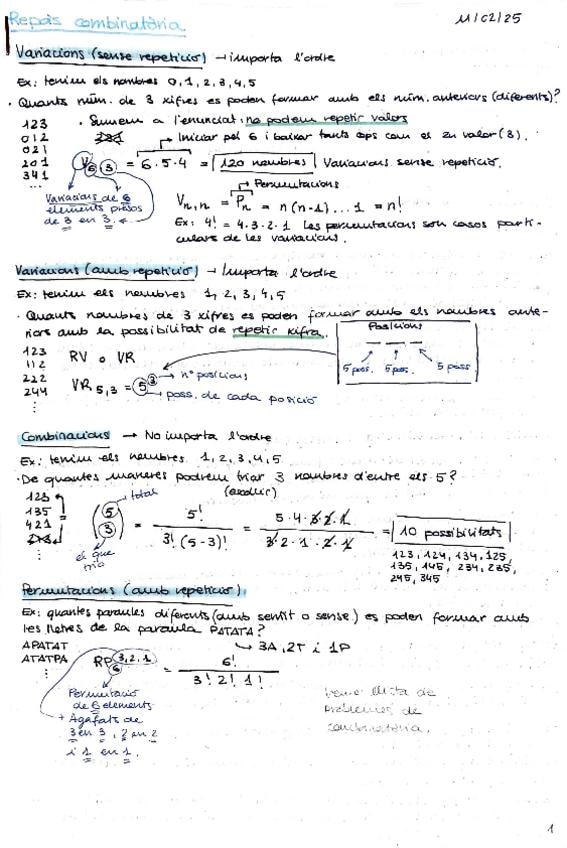 Repàs combinatòria
11/02/25
Variacions (sense repetició) → importa l'ordre
Ex: tenim els nombres 0, 1, 2, 3, 4, 5
· Quants núm. de 3 xifres es poden formar amb els núm. anteriors (diferents)?
123 · Sumem a l'enunciat: no podem repetir valors
012
021
Iniciar pel 6 i baixar tants cops com el 2n valor (3).
201
341
...
V 6, 3 = 6·5·4 = 120 nombres Variacions sense repetició.
Variacions de 6
elements presos
de 3 en 3.
Permutacions
Vn,n = Pn = n(n-1)...1 = n!
Ex: 4! = 4·3·2·1 Les permutacions son casos parti-
culars de les variacions.
Variacions (amb repetició) → Importa l'ordre
Ex: tenim els nombres 1, 2, 3, 4, 5
· Quants nombres de 3 xifres es poden formar amb els nombres ante-
riors amb la possibilitat de repetir xifra.
Posicions
5 poss. 5 poss. 5 poss.
123
112
222
244
⋮
RV o VR
VR5,3 = 5³
→ nº posicions
→ poss. de cada posició
Combinacions → No importa l'ordre
Ex: tenim els nombres 1, 2, 3, 4, 5
· De quantes maneres podrem triar 3 nombres d'entre els 5?
123
135
421
⋮
total
(5 3) = 5! / 3!(5-3)! = 5·4·3·2·1 / 3·2·1·2·1 = 10 possibilitats
el que
trio
123, 124, 134, 125,
135, 145, 234, 235,
245, 345
Permutacions (amb repetició)
Ex: quantes paraules diferents (amb sentit o sense) es poden formar amb
les lletres de la paraula PATATA?
→ 3A, 2T i 1P
APATAT
ATATPA
⋮
RP 3,2,1 6 = 6! / 3! 2! 1!
Permutació
de 6 elements
+ Agafats de
3 en 3, 2 en 2
i 1 en 1.
llista de
problemes de
combinatòria.
1